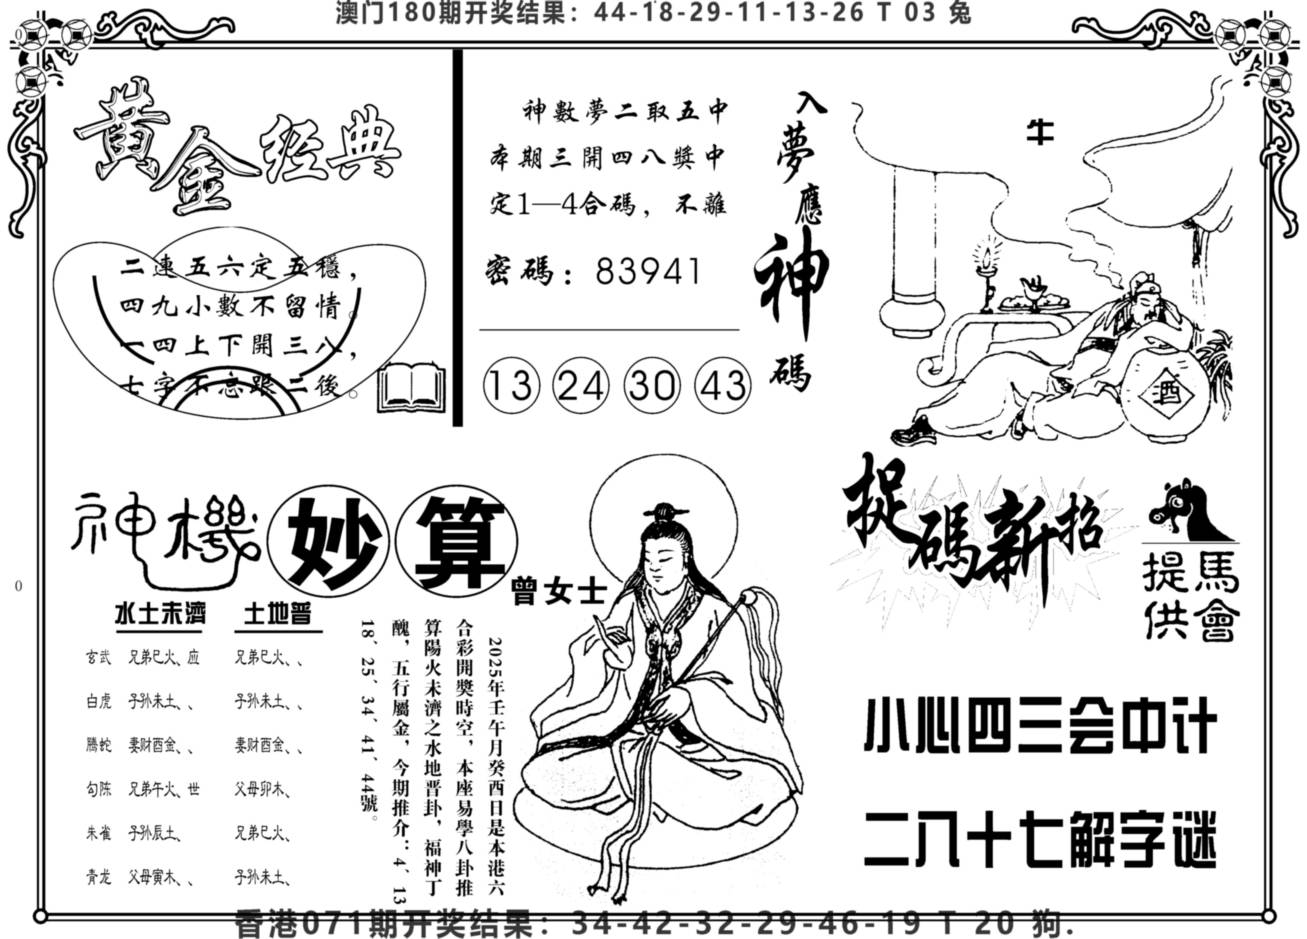 澳门180期开奖结果：44-18-29-11-13-26 T 03 兔
黄金经典
二連五六定五穩，
四九小數不留情。
一四上下開三八，
七字不忘跟二後。
神數夢二取五中
本期三開四八獎中
定1—4合碼，不離
密碼：83941
13 24 30 43
入夢應神碼
牛
酒
神機妙算
曾女士
水土未濟 土地普
玄武 兄弟巳火、应 兄弟巳火、、
白虎 子孙未土、、 子孙未土、、
騰蛇 妻财酉金、、 妻财酉金、、
勾陈 兄弟午火、世 父母卯木、
朱雀 子孙辰土、 兄弟巳火、
青龙 父母寅木、、 子孙未土、
2025年壬午月癸酉日是本港六
合彩開獎時空，本座易學八卦推
算陽火未濟之水地晋卦，福神丁
醜，五行屬金，今期推介：4、13
18、25、34、41、44號。
捉碼新招
馬會提供
小心四三会中计
二八十七解字谜
香港071期开奖结果：34-42-32-29-46-19 T 20 狗.
0
0